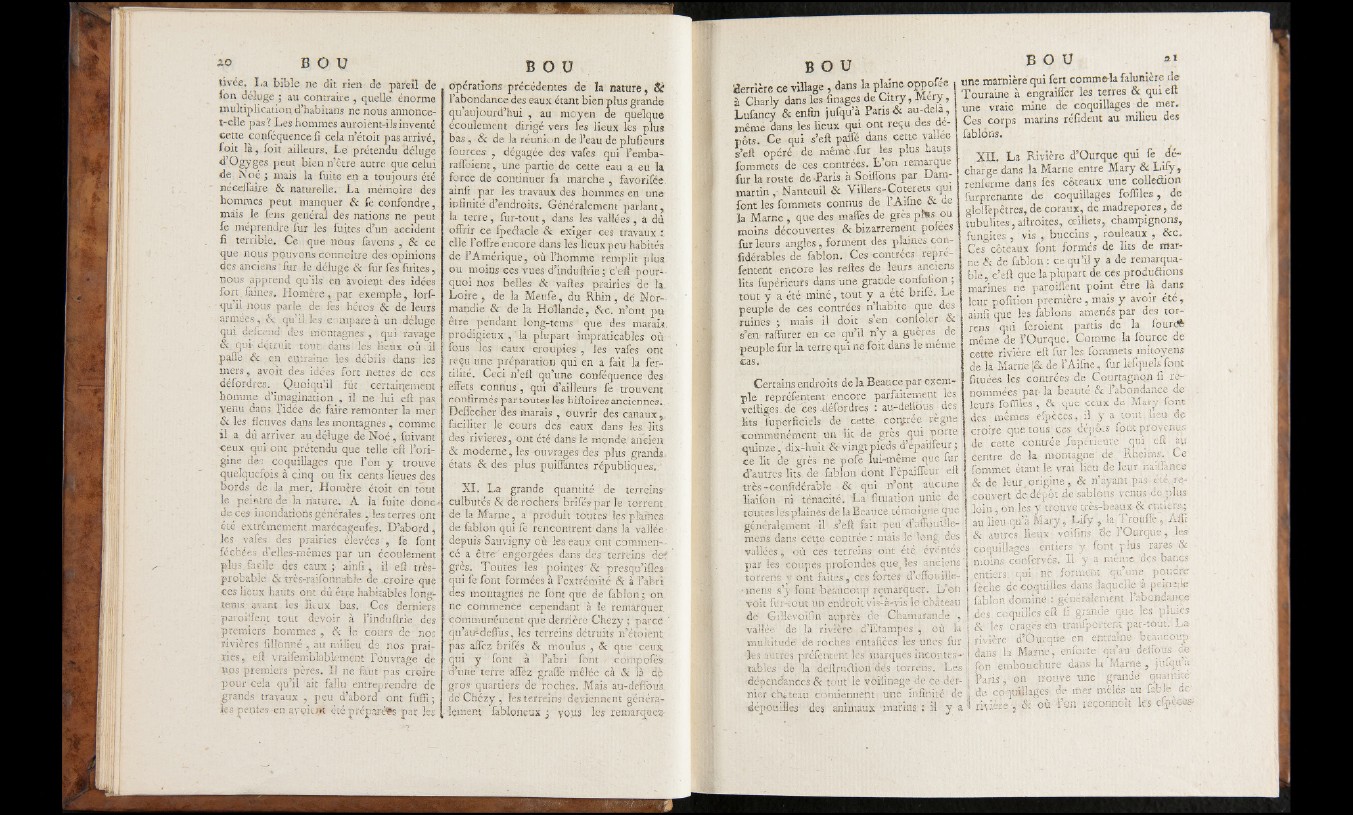 20 BOU
tivée. La bible ne dit rien de pareil de
son déluge ; au contraire, quelle énorme
multiplication d'habitans ne nous annonce-
t-elle pas ? Les hommes auroient-ils inventé
cette conséquence si cela n'étoit pas arrivé,
soit là, soit ailleurs. Le prétendu déluge
d'Ogyges peut bien n'être autre que celui
de Noé ; mais la suite en a toujours été
nécessaire & naturelle. La mémoire des
hommes peut manquer & se confondre,
mais le sens général des nations ne peut
se méprendre sur les suites d'un accident
si terrible. Ce que nous savons, & ce
que nous pouvons connoître des opinions
des anciens sur le déluge & sur ses suites,
nous apprend qu'ils en avoient des idées
fort saines. Homère, par exemple, lors-
qu'il nous parle de ses héros & de leurs
armées, & qu'il les compare à un déluge
qui descend des montagnes, qui ravage
& qui détruit tout dans les lieux où il
passe & en entraîne les débris dans les
mers, avoit des idées fort nettes de ces
désordres. Quoiqu'il fût certainement
homme d'imagination, il ne lui est pas
venu dans l'idée de faire remonter la mer
& les fleuves dans les montagnes, comme
il a dû arriver au déluge de Noé, suivant
ceux qui ont prétendu que telle est l'ori-
gine des coquillages que l'on y trouve
quelquefois à cinq ou six cents lieues des
bords de la mer. Homère étoit en tout
le peintre de la nature. A la suite donc
de ces inondations générales, les terres ont
été extrêmement marécageuses. D'abord,
les vases des prairies élevées, se sont
séchées d'elles-mêmes par un écoulement
plus facile des eaux ; ainsi, il est très-
probable & très-raisonnable de croire que
ces lieux hauts ont dû être habitables long-
tems avant les lieux bas. Ces derniers
paroissent tout devoir à l'industrie des
premiers hommes, & le cours de nos
rivières sillonné, au milieu de nos prai-
ries, est vraisemblablement l'ouvrage de
nos premiers pères. Il ne faut pas croire
pour cela qu'il ait fallu entreprendre de
grands travaux, peu d'abord ont suffi ;
les pentes en avoient été préparées par les
BOU
opérations précédentes de la nature, &
l'abondance des eaux étant bien plus grande
qu'aujourd'hui, au moyen de quelque
écoulement dirigé vers les lieux les plus
bas, & de la réunion de l'eau de plusieurs
sources, dégagée des vases qui l'emba-
rassoient, une partie de cette eau a eu la
force de continuer sa marche, favorisée
ainsi par les travaux des hommes en une
infinité d'endroits. Généralement parlant,
la terre, sur-tout, dans les vallées, a dû
offrir ce spectacle & exiger ces travaux :
elle l'offre encore dans les lieux peu habités
de l'Amérique, où l'homme remplit plus
ou moins ces vues d'industrie ; c'est pour-
quoi nos belles & vastes prairies de la
Loire, de la Meuse, du Rhin, de Nor-
mandie & de la Hollande, &c. n'ont pu
être pendant long-tems que des marais
prodigieux, la plupart impraticables où
sous les eaux croupies, les vases ont
reçu une préparation qui en a fait la fer-
tilité. Ceci n'est qu'une conséquence des
effets connus, qui d'ailleurs se trouvent
confirmés par toutes les histoires anciennes.
Dessécher des marais, ouvrir des canaux,
faciliter le cours des eaux dans les lits
des rivieres, ont été dans le monde ancien
& moderne, les ouvrages des plus grands
états & des plus puissantes républiques.
XI. La grande quantité de terreins
culbutés & de rochers brisés par le torrent
de la Marne, a produit toutes les plaines
de sablon qui se rencontrent dans la vallée
depuis Sauvigny où les eaux ont commen-
cé à être engorgées dans des terreins de
grès. Toutes les pointes & presqu'isles
qui se sont formées à l'extrémité & à l'abri
des montagnes ne sont que de sablon ; on
ne commence cependant à le remarquer
communément que derrière Chezy ; parce
qu'au-dessus, les terreins détruits n'étoient
pas assez brisés & moulus, & que ceux
qui y sont à l'abri sont composés
d'une terre assez grasse mêlée çà & là de
gros quartiers de roches. Mais au-dessous
de Chézy, les terreins deviennent généra-
lement sabloneux ; vous les remarquez
BOU
derrière ce village, dans la plaine opposée
à Charly dans les finages de Citry, Méry,
Lusancy & enfin jusqu'à Paris & au-delà,
même dans les lieux qui ont reçu des dé-
pôts. Ce qui s'est passé dans cette vallée
s'est opéré de même sur les plus hauts
sommets de ces contrées. L'on remarque
sur la route de Paris à Soissons par Dam-
martin, Nanteuil & Villers-Coterets qui
sont les sommets connus de l'Aisne & de
la Marne, que des masses de grès plus ou
moins découvertes & bizarrement posées
sur leurs angles, forment des plaines con-
sidérables de sablon. Ces contrées repré-
sentent encore les restes de leurs anciens
lits supérieurs dans une grande confusion ;
tout y a été miné, tout y a été brisé. Le
peuple de ces contrées n'habite que des
ruines ; mais il doit s'en consoler &
s'en rassurer en ce qu'il n'y a guères de
peuple sur la terre qui ne soit dans le même
cas.
Certains endroits de la Beauce par exem-
ple représentent encore parfaitement les
vestiges de ces désordres : au-dessous des
lits superficiels de cette contrée règne
communément un lit de grès qui porte
quinze, dix-huit & vingt pieds d'épaisseur ;
ce lit de grès ne pose lui-même que sur
d'autres lits de sablon dont l'épaisseur est
très-considérable & qui n'ont aucune
liaison ni ténacité. La situation unie de
toutes les plaines de la Beauce témoigne que
généralement il s'est fait peu d'affouille-
mens dans cette contrée : mais le long des
vallées, où ces terreins ont été éventés
par les coupes profondes que les anciens
torrens y ont faites, ces sortes d'affouille-
mens s'y font beaucoup remarquer. L'on
voit sur-tout un endroit vis-à-vis le château
de Gillevoisin auprès de Chamarande,
vallée de la rivière d'Etampes, où la
multitude de roches entassées les unes sur
les autres présentent les marques incontes-
tables de la destruction des torrens. Les
dépendances & tout le voisinage de ce der-
nier château contiennent une infinité de
dépouilles des animaux marins : il y a
BOU 21
une marnière qui sert comme la falunière de
Touraine à engraisser les terres & qui est
une vraie mine de coquillages de mer.
Ces corps marins résident au milieu des
sablons.
XII. La Rivière d'Ourque qui se dé-
charge dans la Marne entre Mary & Lisy,
renferme dans ses côteaux une collection
surprenante de coquillages fossiles, de
glossepètres, de coraux, de madrepores, de
tubulites, astroites, œillets, champignons,
fungites, vis, buccins, rouleaux, &c.
Ces côteaux sont formés de lits de mar-
ne & de sablon : ce qu'il y a de remarqua-
ble, c'est que la plupart de ces productions
marines ne paroissent point être là dans
leur position première, mais y avoir été,
ainsi que les sablons amenés par des tor-
rens qui seroient partis de la source
même de l'Ourque. Comme la source de
cette rivière est sur les sommets mitoyens
de la Marne & de l'Aisne, sur lesquels sont
situées les contrées de Courtagnon si re-
nommées par la beauté & l'abondance de
leurs fossiles, & que ceux de Mary sont
des mêmes espèces, il y a tout lieu de
croire que tous ces dépôts sont provenus
de cette contrée supérieure qui est au
centre de la montagne de Rheims. Ce
sommet étant le vrai lieu de leur naissance
& de leur origine, & n'ayant pas été re-
couvert de dépôt de sablons venus de plus
loin, on les y trouve très-beaux & entiers ;
au lieu qu'à Mary, Lisy, la Trousse, Assi
& autres lieux voisins de l'Ourque, les
coquillages entiers y sont plus rares &
moins conservés. Il y a même des bancs
entiers qui ne forment qu'une poudre
sèche de coquilles dans laquelle à peine le
sablon domine : généralement l'abondance
des coquilles est si grande que les pluies
& les orages en transportent par-tout. La
rivière d'Ourque en entraîne beaucoup
dans la Marne, ensorte qu'au dessous de
son embouchure dans la Marne, jusqu'à
Paris, on trouve une grande quantité
de coquillages de mer mêlés au sable de
rivière, & où l'on reconnoît les espèces